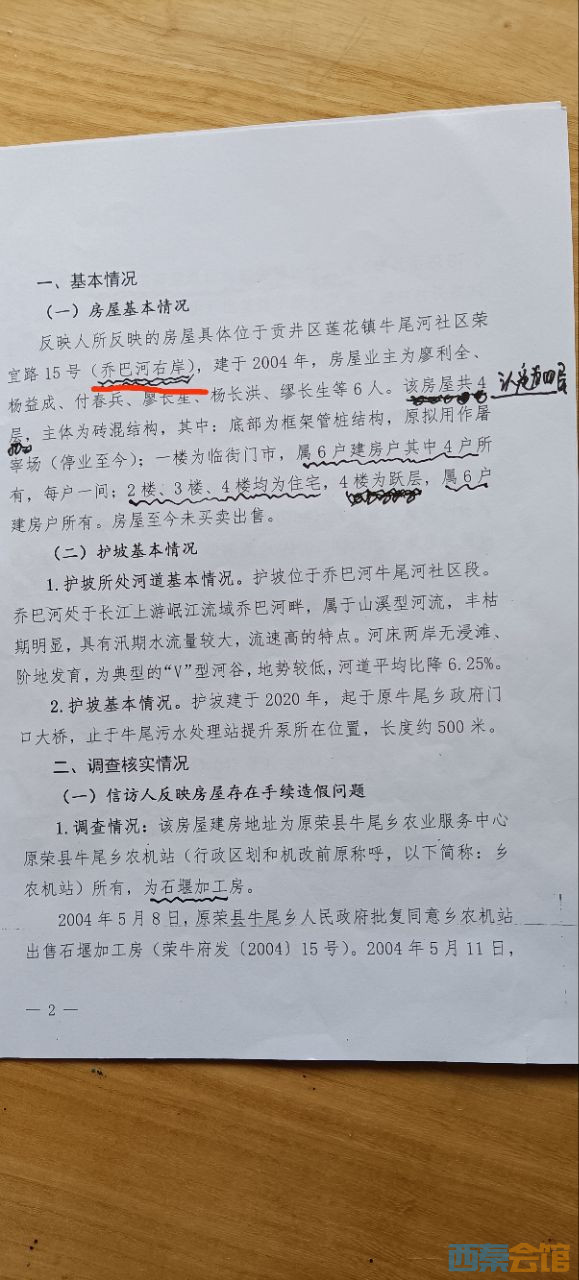 一、基本情况
（一）房屋基本情况
反映人所反映的房屋具体位于贡井区莲花镇牛尾河社区荣
宜路 15 号（乔巴河右岸），建于 2004 年，房屋业主为廖利全、
杨益成、付春兵、廖长星、杨长洪、缪长生等 6 人。该房屋共 4 认定为四层
层，主体为砖混结构，其中：底部为框架管桩结构，原拟用作屠
宰场（停业至今）；一楼为临街门市，属 6 户建房户其中 4 户所
有，每户一间；2 楼、3 楼、4 楼均为住宅，4 楼为跃层，属 6 户
建房户所有。房屋至今未买卖出售。
（二）护坡基本情况
1.护坡所处河道基本情况。护坡位于乔巴河牛尾河社区段。
乔巴河处于长江上游岷江流域乔巴河畔，属于山溪型河流，丰枯
期明显，具有汛期水流量较大，流速高的特点。河床两岸无浸滩、
阶地发育，为典型的“V”型河谷，地势较低，河道平均比降 6.25%。
2.护坡基本情况。护坡建于 2020 年，起于原牛尾乡政府门
口大桥，止于牛尾污水处理站提升泵所在位置，长度约 500 米。
二、调查核实情况
（一）信访人反映房屋存在手续造假问题
1.调查情况：该房屋建房地址为原荣县牛尾乡农业服务中心
原荣县牛尾乡农机站（行政区划和机改前原称呼，以下简称：乡
农机站）所有，为石堰加工房。
2004 年 5 月 8 日，原荣县牛尾乡人民政府批复同意乡农机站
出售石堰加工房（荣牛府发〔2004〕15 号）。2004 年 5 月 11 日，
— 2 —
西秦会馆